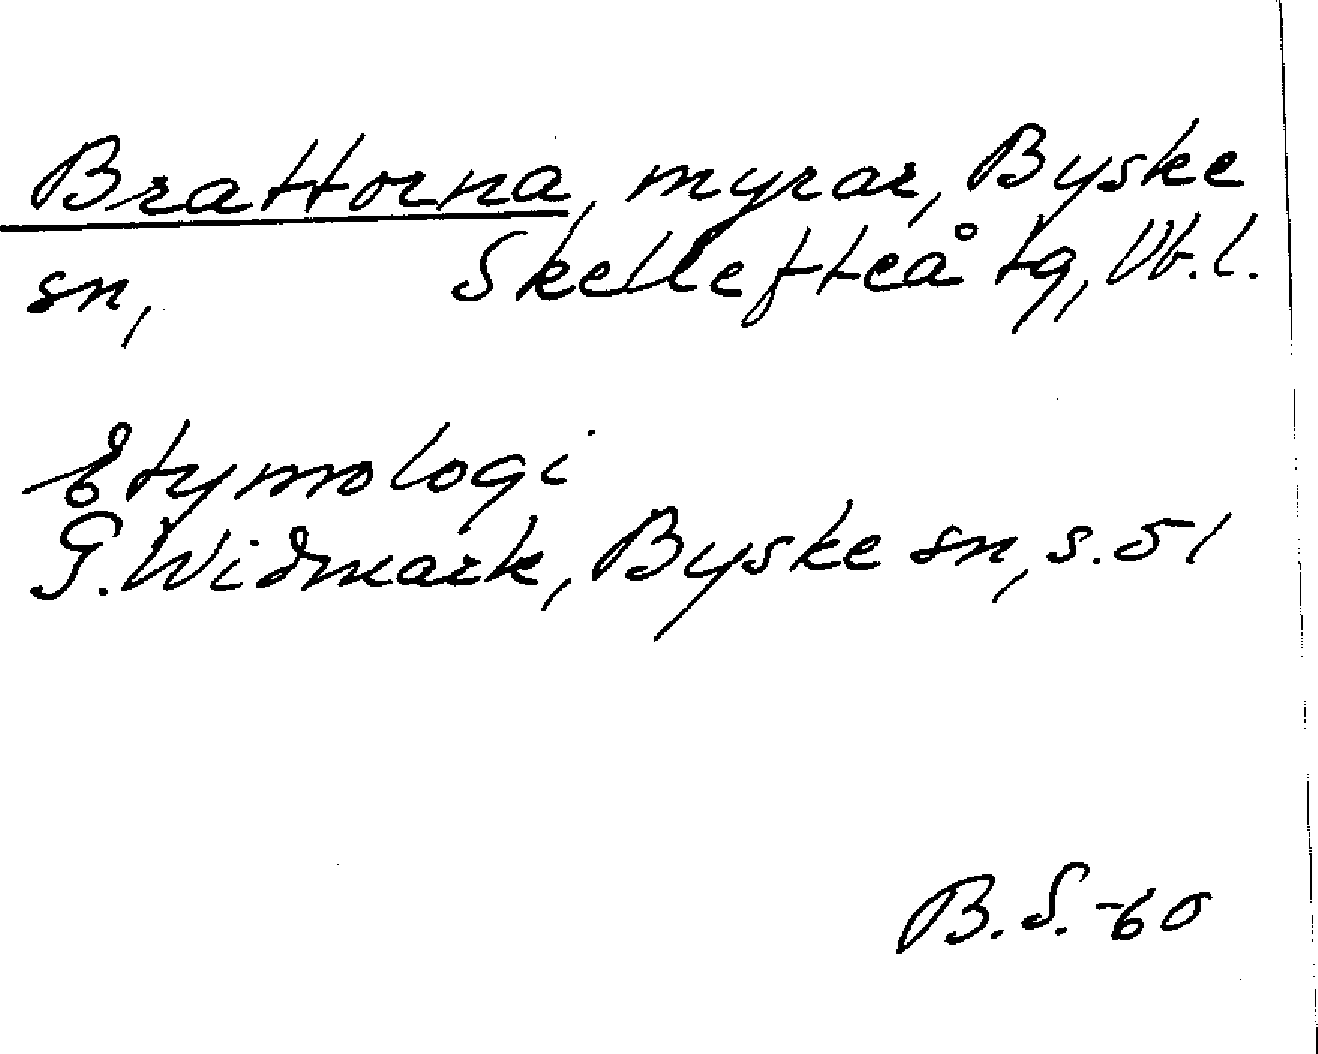 Brattorna, myrar, Byske
sn, Skellefteå tg, Vb.l.
Etymologi
G. Widmark, Byske sn, s. 51
B.S.-60